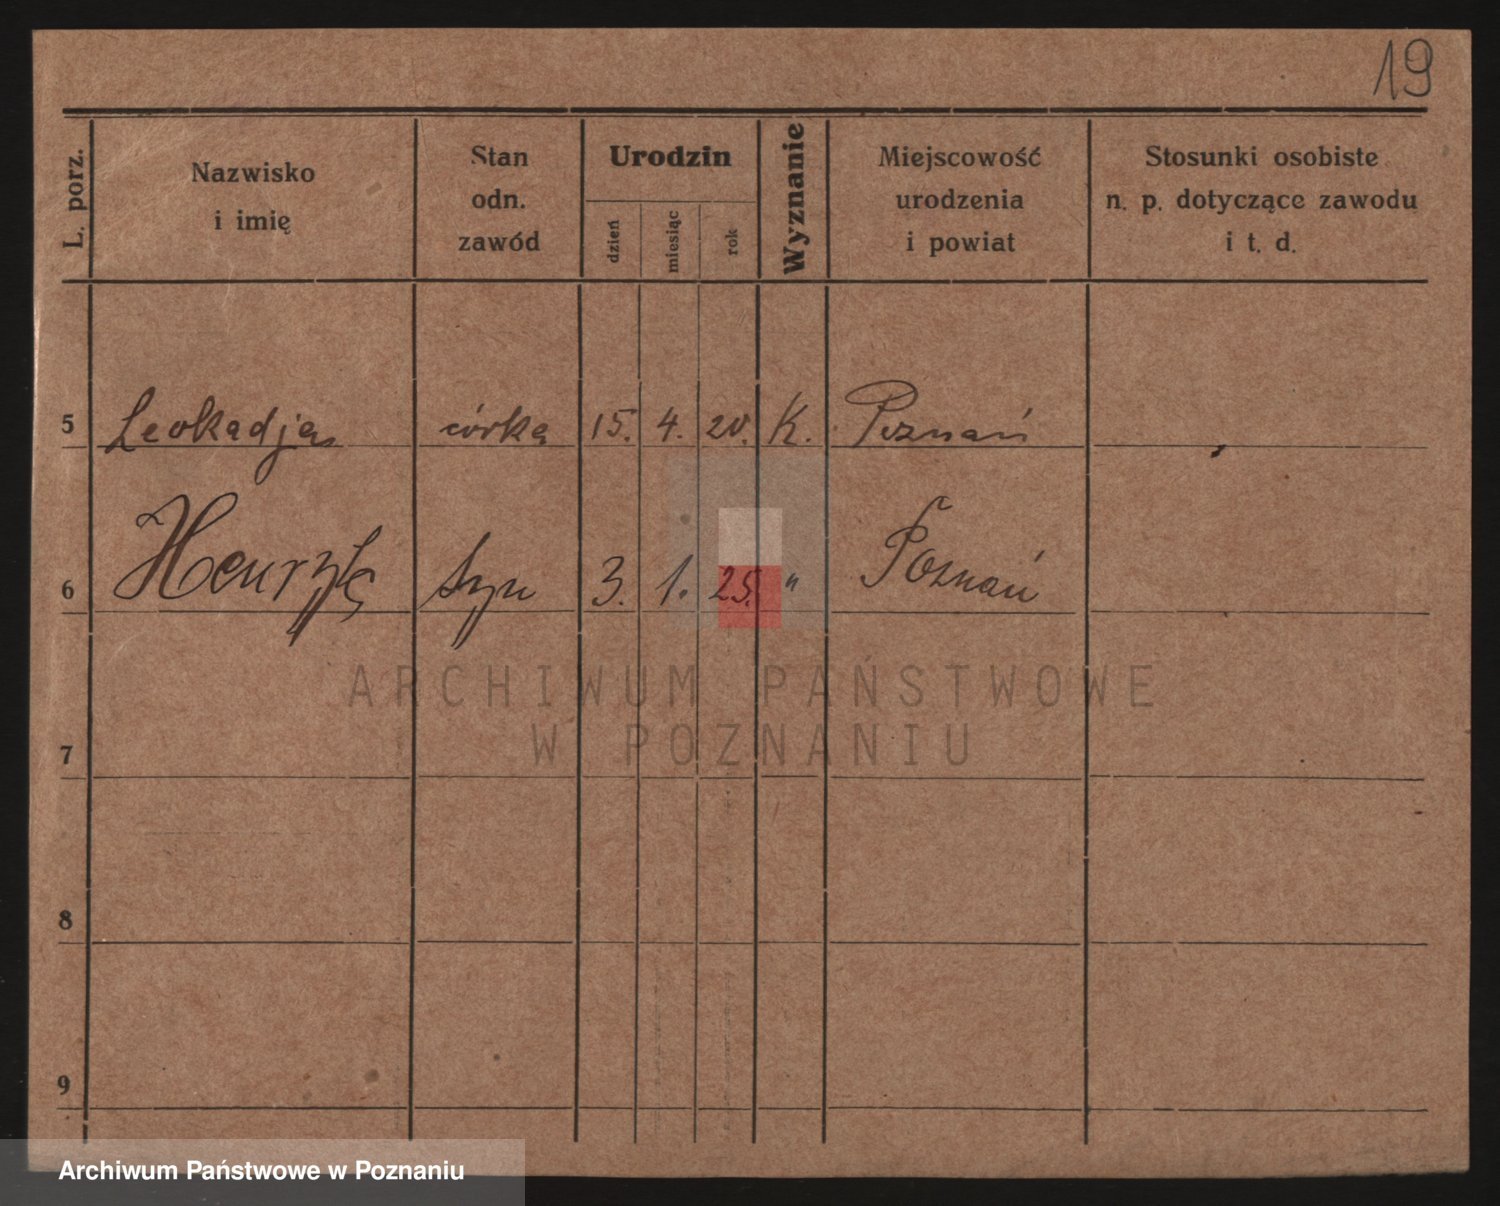 19
L. porz.
Nazwisko
i imię
Stan
odn.
zawód
Urodzin
dzień
miesiąc
rok
Wyznanie
Miejscowość
urodzenia
i powiat
Stosunki osobiste
n. p. dotyczące zawodu
i t. d.
5 Leokadja córka 15. 4. 20. K. Poznań
6 Henryk syn 3. 1. 25. " Poznań
ARCHIWUM PAŃSTWOWE
W POZNANIU
7
8
9
Archiwum Państwowe w Poznaniu